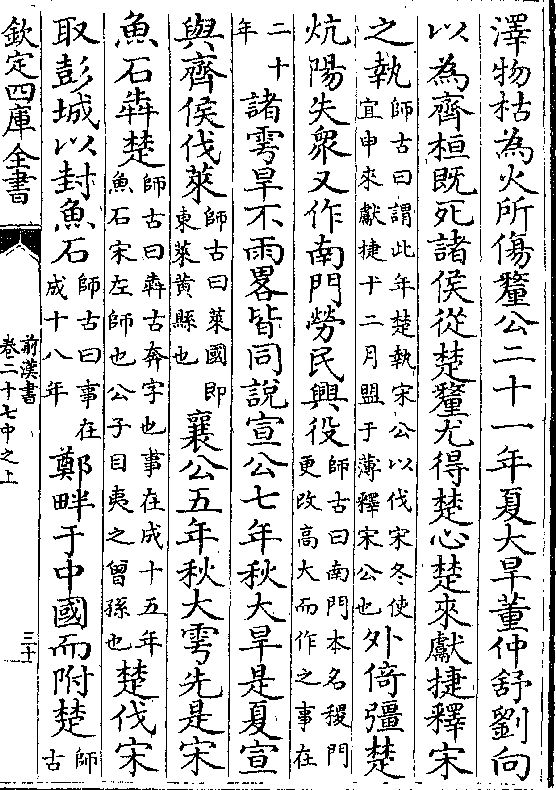 澤物枯為火所傷釐公二十一年夏大旱董仲舒劉向
以為齊桓既死諸侯從楚釐尤得楚心楚來獻捷釋宋
之執師古曰謂此年楚執宋公以伐宋冬使宜申來獻捷十二月盟于薄釋宋公也外倚彊楚
炕陽失衆又作南門勞民興役師古曰南門本名稷門更改高大而作之事在
二十年諸雩旱不雨畧皆同說宣公七年秋大旱是夏宣
與齊侯伐萊師古曰萊國即東萊黄縣也襄公五年秋大雩先是宋
魚石犇楚師古曰犇古奔字也事在成十五年魚石宋左師也公子目夷之曾孫也楚伐宋
取彭城以封魚石師古曰事在成十八年鄭畔于中國而附楚師古
欽定四庫全書
前漢書
卷二十七中之上
三十